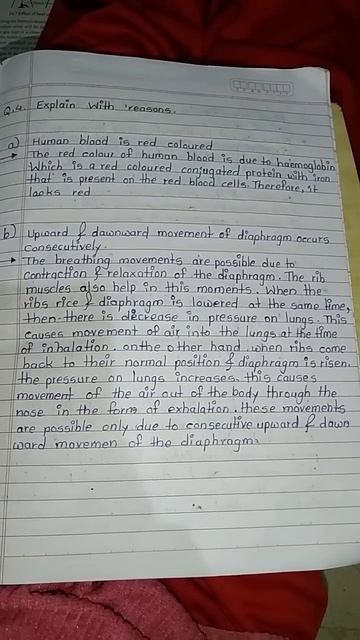 Q.4. Explain with reasons.
a) Human blood is red coloured
→ The red colour of human blood is due to haemoglobin
Which is a red coloured conjugated protein with iron
that is present on the red blood cells. Therefore, it
looks red
b) Upward & downward movement of diaphragm occurs
consecutively.
→ The breathing movements are possible due to
contraction & relaxation of the diaphragm. The rib
muscles also help in this moments. When the
ribs rice & diaphragm is lowered at the same time,
then there is decrease in pressure on lungs. This
causes movement of air into the lungs at the time
of inhalation. on the other hand. when ribs come
back to their normal position & diaphragm is risen.
the pressure on lungs increases. this causes
movement of the air out of the body through the
nose in the form of exhalation. these movements
are possible only due to consecutive upward & down
ward movemen of the diaphragm.